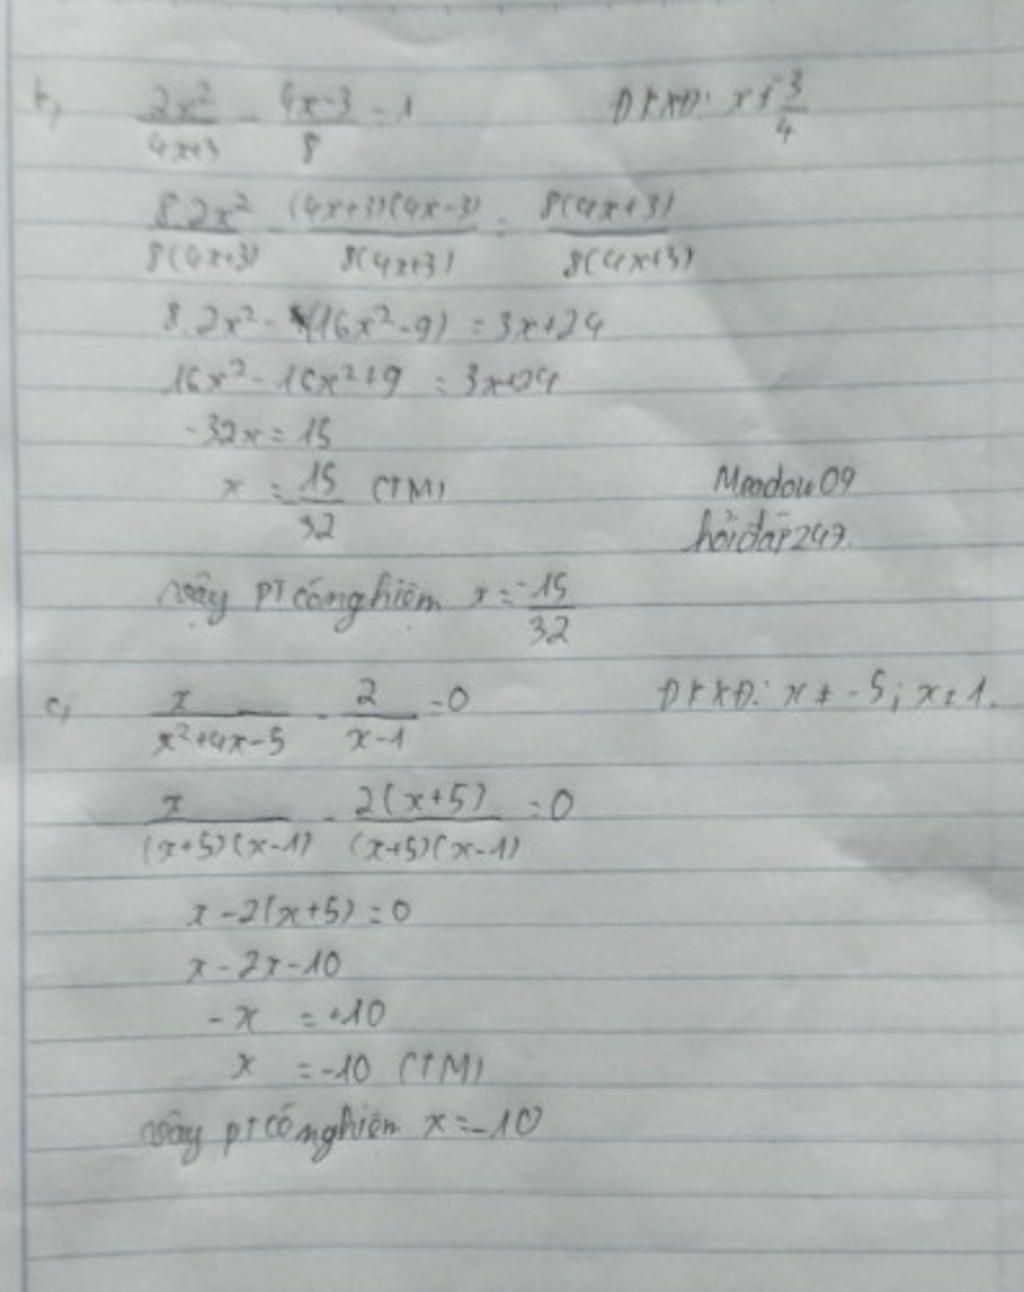 b, 2x²/4x+3 - 4x-3/8 = 1 ĐKXĐ: x ≠ -3/4
8.2x²/8(4x+3) - (4x+3)(4x-3)/8(4x+3) = 8(4x+3)/8(4x+3)
8.2x² - (16x²-9) = 3x+24
16x² - 16x²+9 = 3x+24
-32x = 15
x = -15/32 (TM)
Meadow09
hỏiđáp247.
Vậy PT có nghiệm x = -15/32
c, x/x²+4x-5 - 2/x-1 = 0 ĐKXĐ: x ≠ -5; x ≠ 1.
x/(x+5)(x-1) - 2(x+5)/(x+5)(x-1) = 0
x-2(x+5) = 0
x-2x-10
-x = +10
x = -10 (TM)
Vậy PT có nghiệm x = -10